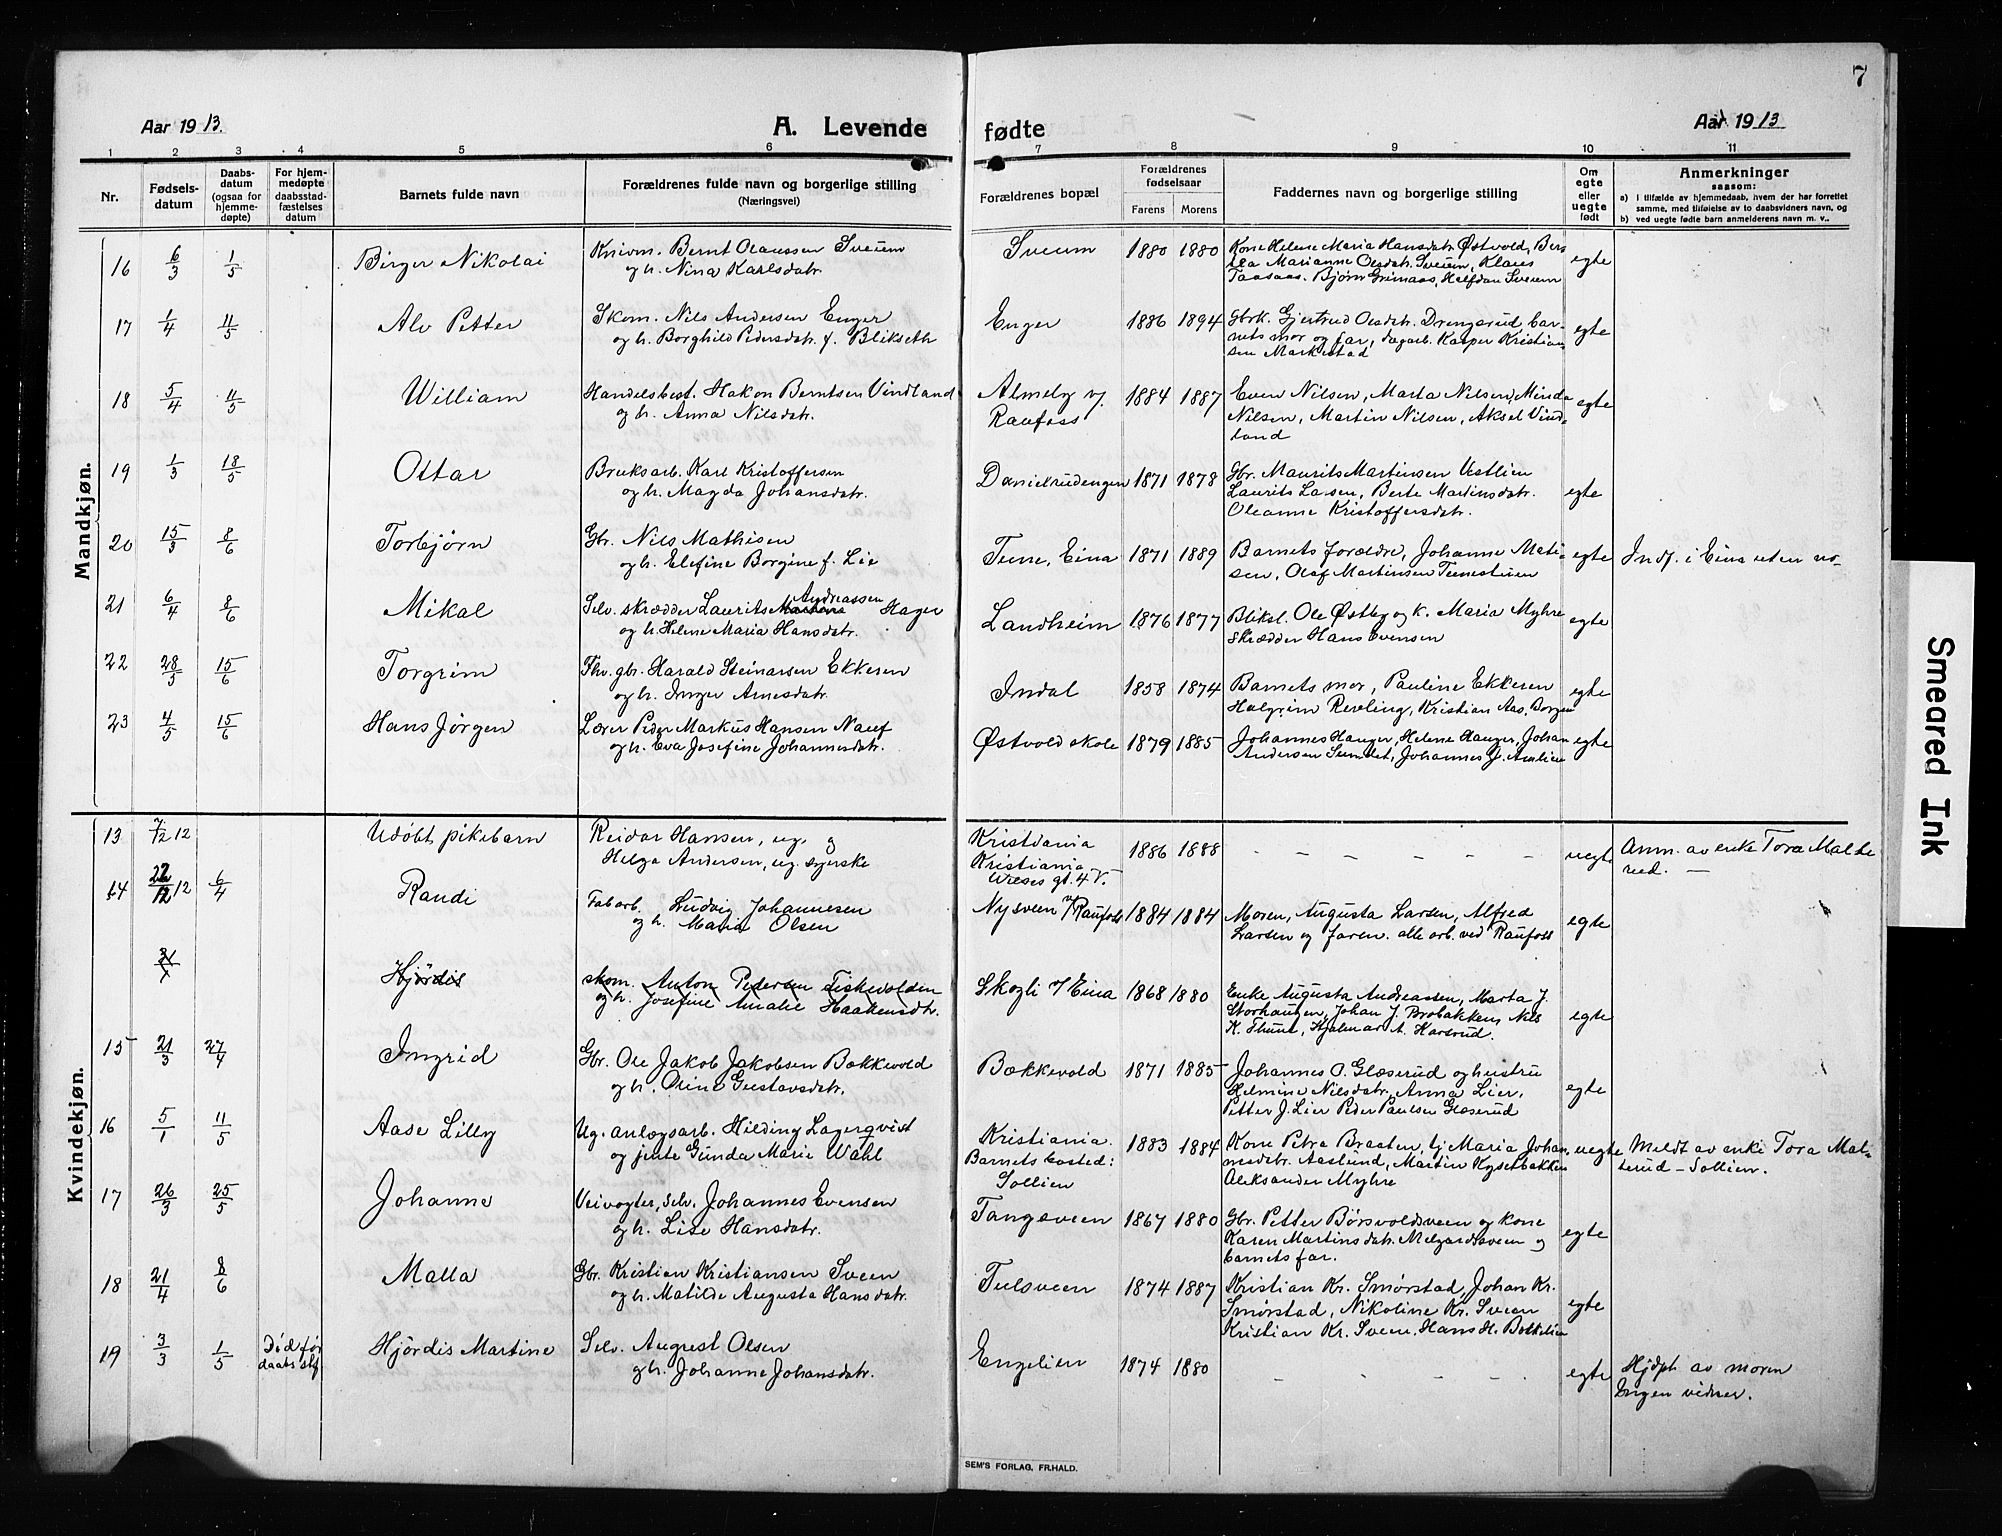 7
Aar 1913.
A. Levende
fødte
Aar 1913
1 2 3 4 5 6 7 8 9 10 11
Nr.
Fødsels-
datum
Daabs-
datum
(ogsaa for
hjemme-
døpte)
For hjem-
medøpte
daabsstad-
fæstelses
datum
Barnets fulde navn
Forældrenes fulde navn og borgerlige stilling
(Næringsvei)
Forældrenes bopæl
Forældrenes
fødselsaar
Farens Morens
Faddernes navn og borgerlige stilling
Om
egte
eller
uegte
født
Anmerkninger
saasom:
a) i tilfælde av hjemmedaab, hvem der har forrettet
samme, med tilføielse av to daabsvidners navn, og
b) ved uegte fødte barn anmelderens navn m. v..
Mandkjøn.
16 6/3 1/5 Birger Nikolai
Knivm. Bernt Olaussen Sveum
og h. Nina Karlsdatr.
Sveum 1880 1880
Kone Helene Maria Hansdatr. Østvold, Ber-
tea Marianne Olsdatr. Sveum, Klaus
Taasaas. Bjørn Grimaas, Halfdan Sveum
egte
17 1/4 11/5 Alv Petter
Skom. Nils Andersen Enger
og h. Borghild Pedersdatr. f. Blikseth
Enger 1886 1894
Gbrk. Gjertrud Olsdatr. Drengsrud, bar-
nets mor og far, dagarb. Kasper Kristian-
sen Markestad
egte
18 5/4 11/5 William
Handelsbest. Hakon Berntsen Vindland
og h. Anna Nilsdatr.
Almely v.
Raufoss
1884 1887
Even Nilsen, Marta Nilsen, Minda
Nilsen, Martin Nilsen, Aksel Vind-
land
egte
19 1/3 18/5 Ottar
Bruksarb. Karl Kristoffersen
og h. Magda Johansdatr.
Danielrudengen 1871 1878
Gbr. Maurits Martinsen Vestlien
Laurits Larsen, Berte Martinsdatr.
Oleanne Kristoffersdatr.
egte
20 15/3 8/6 Torbjørn
Gbr. Nils Mathisen
og h. Elefine Borgine f. Lie
Tune, Eina 1871 1889
Barnets forældre, Johanne Mati-
sen, Olaf Martinsen Tunestuen
egte
Indf. i Eina uten no-
21 6/4 8/6 Mikal
Andreassen
Selv. skrædder Laurits Hager
og h. Helene Maria Hansdatr.
Landheim 1876 1877
Bliksl. Ole Østby og k. Maria Myhre
Skrædder Hans Evensen
egte
22 28/5 15/6 Torgrim
Fhv. gbr. Harald Steinarsen Ekkeren
og h. Inger Arnesdatr.
Indal 1858 1874
Barnets mor, Pauline Ekkeren
Halgrim Revling, Kristian Aas, Borgen
egte
23 4/5 15/6 Hans Jørgen
Lærer Peder Markus Hansen Nauf
og h. Eva Josefine Johannesdatr.
Østvold skole 1879 1885
Johannes Hanger, Helene Hanger, Johan
Andersen Sundet, Johannes J. Amlien
egte
Kvindekjøn.
13 7/12 12 Udøbt pikebarn
Reidar Hansen, ug. og
Helga Andersen, ug. syerske
Kristiania
Kristiania
gt. 4 V.
1886 1888
- - - - - -
uegte
Anm. av enke Tora Malte-
rud. —
14 22/12 12 6/4 Randi
Fabarb. Ludvig Johannesen
og h. Maria Olsen
Nysveen v/Raufoss 1884 1884
Moren, Augusta Larsen, Alfred
Larsen og faren. alle arb. ved Raufoss
egte
Hjørdis
skom. Anton Pedersen Fiskevolden
og h. Josefine Amalie Haakensdtr.
Skogli v/ Eina 1868 1880
Enke Augusta Andreassen, Marta J.
Storhaugen, Johan J. Brobakken, Nils
K. Thune, Hjalmar A. Harsrud.
egte
15 21/3 27/4 Ingrid
Gbr. Ole Jakob Jakobsen Bakkevold
og h. Oline Gustavsdatr.
Bækkevold 1871 1885
Johannes O. Glæserud og hustru
Helmine Nilsdatr. Anna Lier,
Petter J. Lier Peder Paulsen Glæserud
egte
16 5/1 11/5 Aase Lilly
Ug. anlægsarb. Hilding Lagerqvist
og jente Gunda Marie Wahl
Kristiania.
Barnets bosted:
Sollien
1883 1884
Kone Petra Braaten, tj. Maria Johan-
nesdatr. Aaslund, Martin Kysetbakken
Aleksander Myhre
uegte
Meldt av enke Tora Mal-
terud – Sollien.
17 26/3 25/5 Johanne
Veivogter, selv. Johannes Evensen
og h. Lise Hansdatr.
Tangsveen 1867 1880
Gbr. Petter Børsvoldsveen og kone
Karen Martinsdatr. Melgardsveen og
barnets far.
egte
18 21/4 8/6 Malla
Gbr. Kristian Kristiansen Sveen
og h. Matilde Augusta Hansdatr.
Tulsveen 1874 1887
Kristian Kr. Smørstad, Johan Kr.
Smørstad, Nikoline Kr. Sveen
Kristian Kr. Sveen, Hans H. Bakkelien
egte
19 3/3 1/5 Død før
daabs stf
Hjørdis Martine
Selv. August Olsen
og h. Johanne Johansdatr.
Engelien 1874 1880
- - - - - -
egte
Hjdpt. av moren
Ingen vidner.
SEM'S FORLAG, FR.HALD.
Smeared Ink